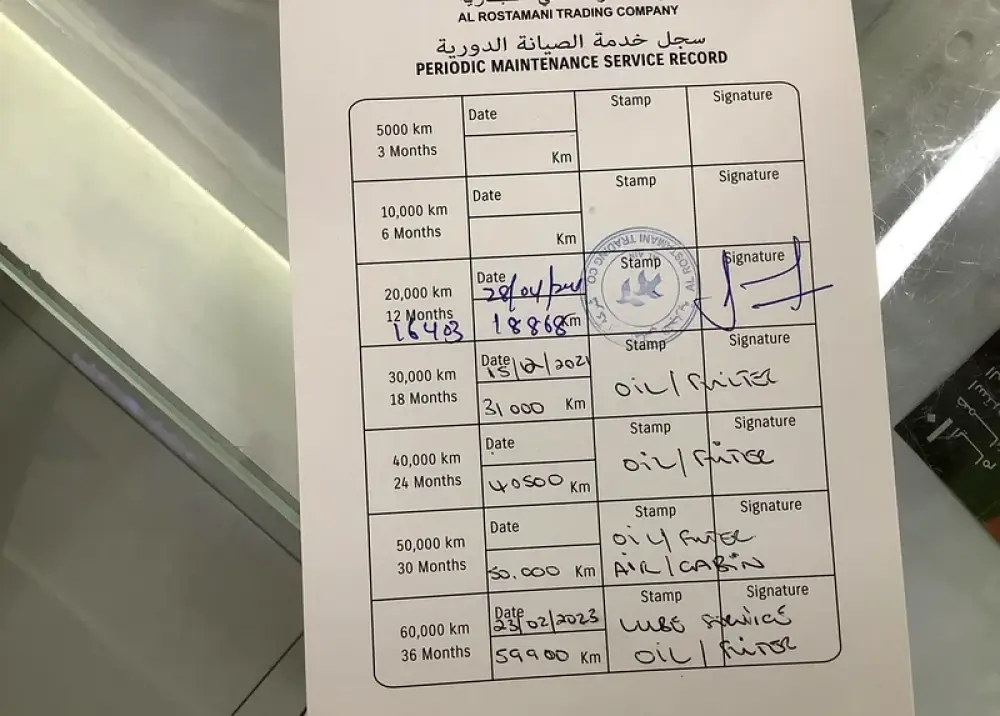 AL ROSTAMANI TRADING COMPANY
سجل خدمة الصيانة الدورية
PERIODIC MAINTENANCE SERVICE RECORD
5000 km
3 Months
Date
Km
Stamp
Signature
10,000 km
6 Months
Date
Km
Stamp
Signature
20,000 km
12 Months
16403
Date
28/04/
18868 Km
Stamp
AL ROSTAMANI TRADING CO
Signature
30,000 km
18 Months
Date
15/12/2021
31000 Km
Stamp
Signature
OIL / FILTER
40,000 km
24 Months
Date
40500 Km
Stamp
Signature
OIL / FILTER
50,000 km
30 Months
Date
50.000 Km
Stamp
Signature
OIL / FILTER
AIR / CABIN
60,000 km
36 Months
Date
23/02/2023
59900 Km
Stamp
Signature
LUBE SERVICE
OIL / FILTER